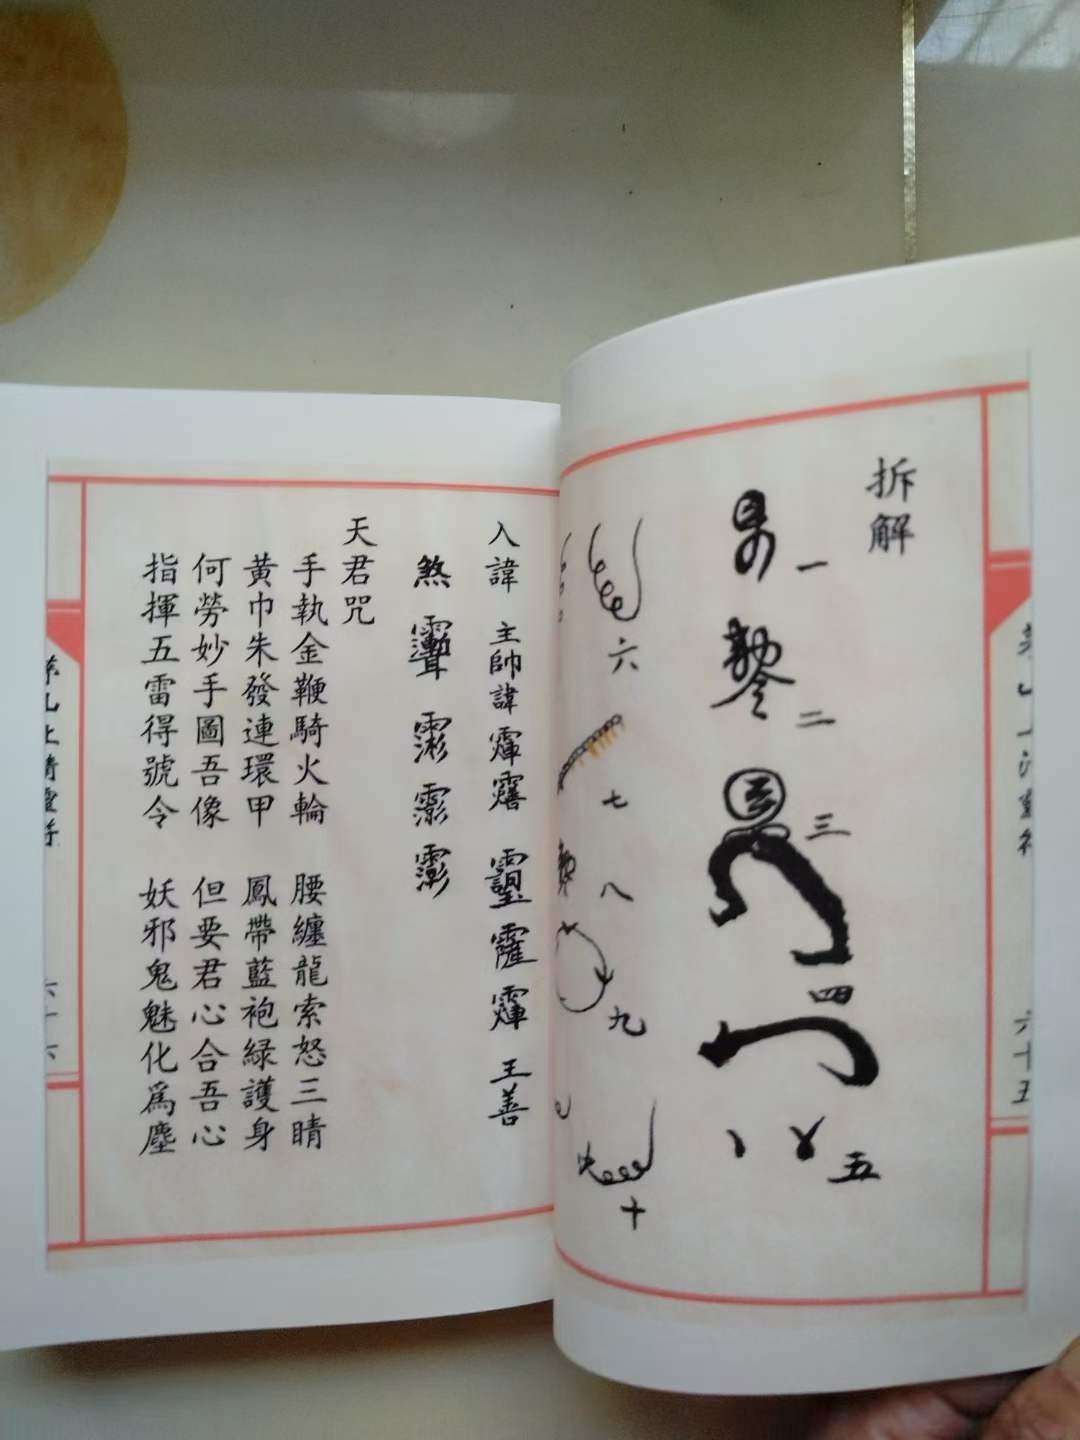 拆解
一
二
三
四
五
六
七
八
九
十
六十五
入諱 主帥諱
王善
煞
天君咒
手執金鞭騎火輪 腰纏龍索怒三睛
黃巾朱發連環甲 鳳帶藍袍緑護身
何勞妙手圖吾像 但要君心合吾心
指揮五雷得號令 妖邪鬼魅化為塵
六十六